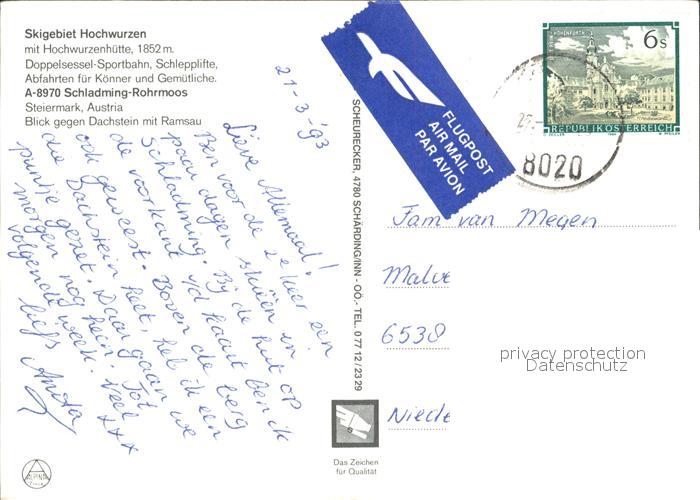 Skigebiet Hochwurzen
mit Hochwurzenhütte, 1852 m.
Doppelsessel-Sportbahn, Schlepplifte,
Abfahrten für Könner und Gemütliche.
A-8970 Schladming-Rohrmoos
Steiermark, Austria
Blick gegen Dachstein mit Ramsau
21-3-'93
Lieve Allemaal!
Ben voor de 2e keer een
paar dagen skiën in
Schladming. Bij de hut op
de voorkant v/d kaart ben ik
ook geweest. Boven de berg
die Dachstein heet, heb ik een
puntje gezet. Daar gaan we
morgen nog heen. Tot
volgende week. Veel
liefs Anita xxx
SCHEURECKER, 4780 SCHÄRDING/INN - OÖ. - TEL. 0 77 12 / 23 29
FLUGPOST
AIR MAIL
PAR AVION
HOHENFURTH
6 S
REPUBLIK ÖSTERREICH
8020
Fam van Megen
Malve
6538
Niede
privacy protection
Datenschutz
Das Zeichen
für Qualität
ALPINA